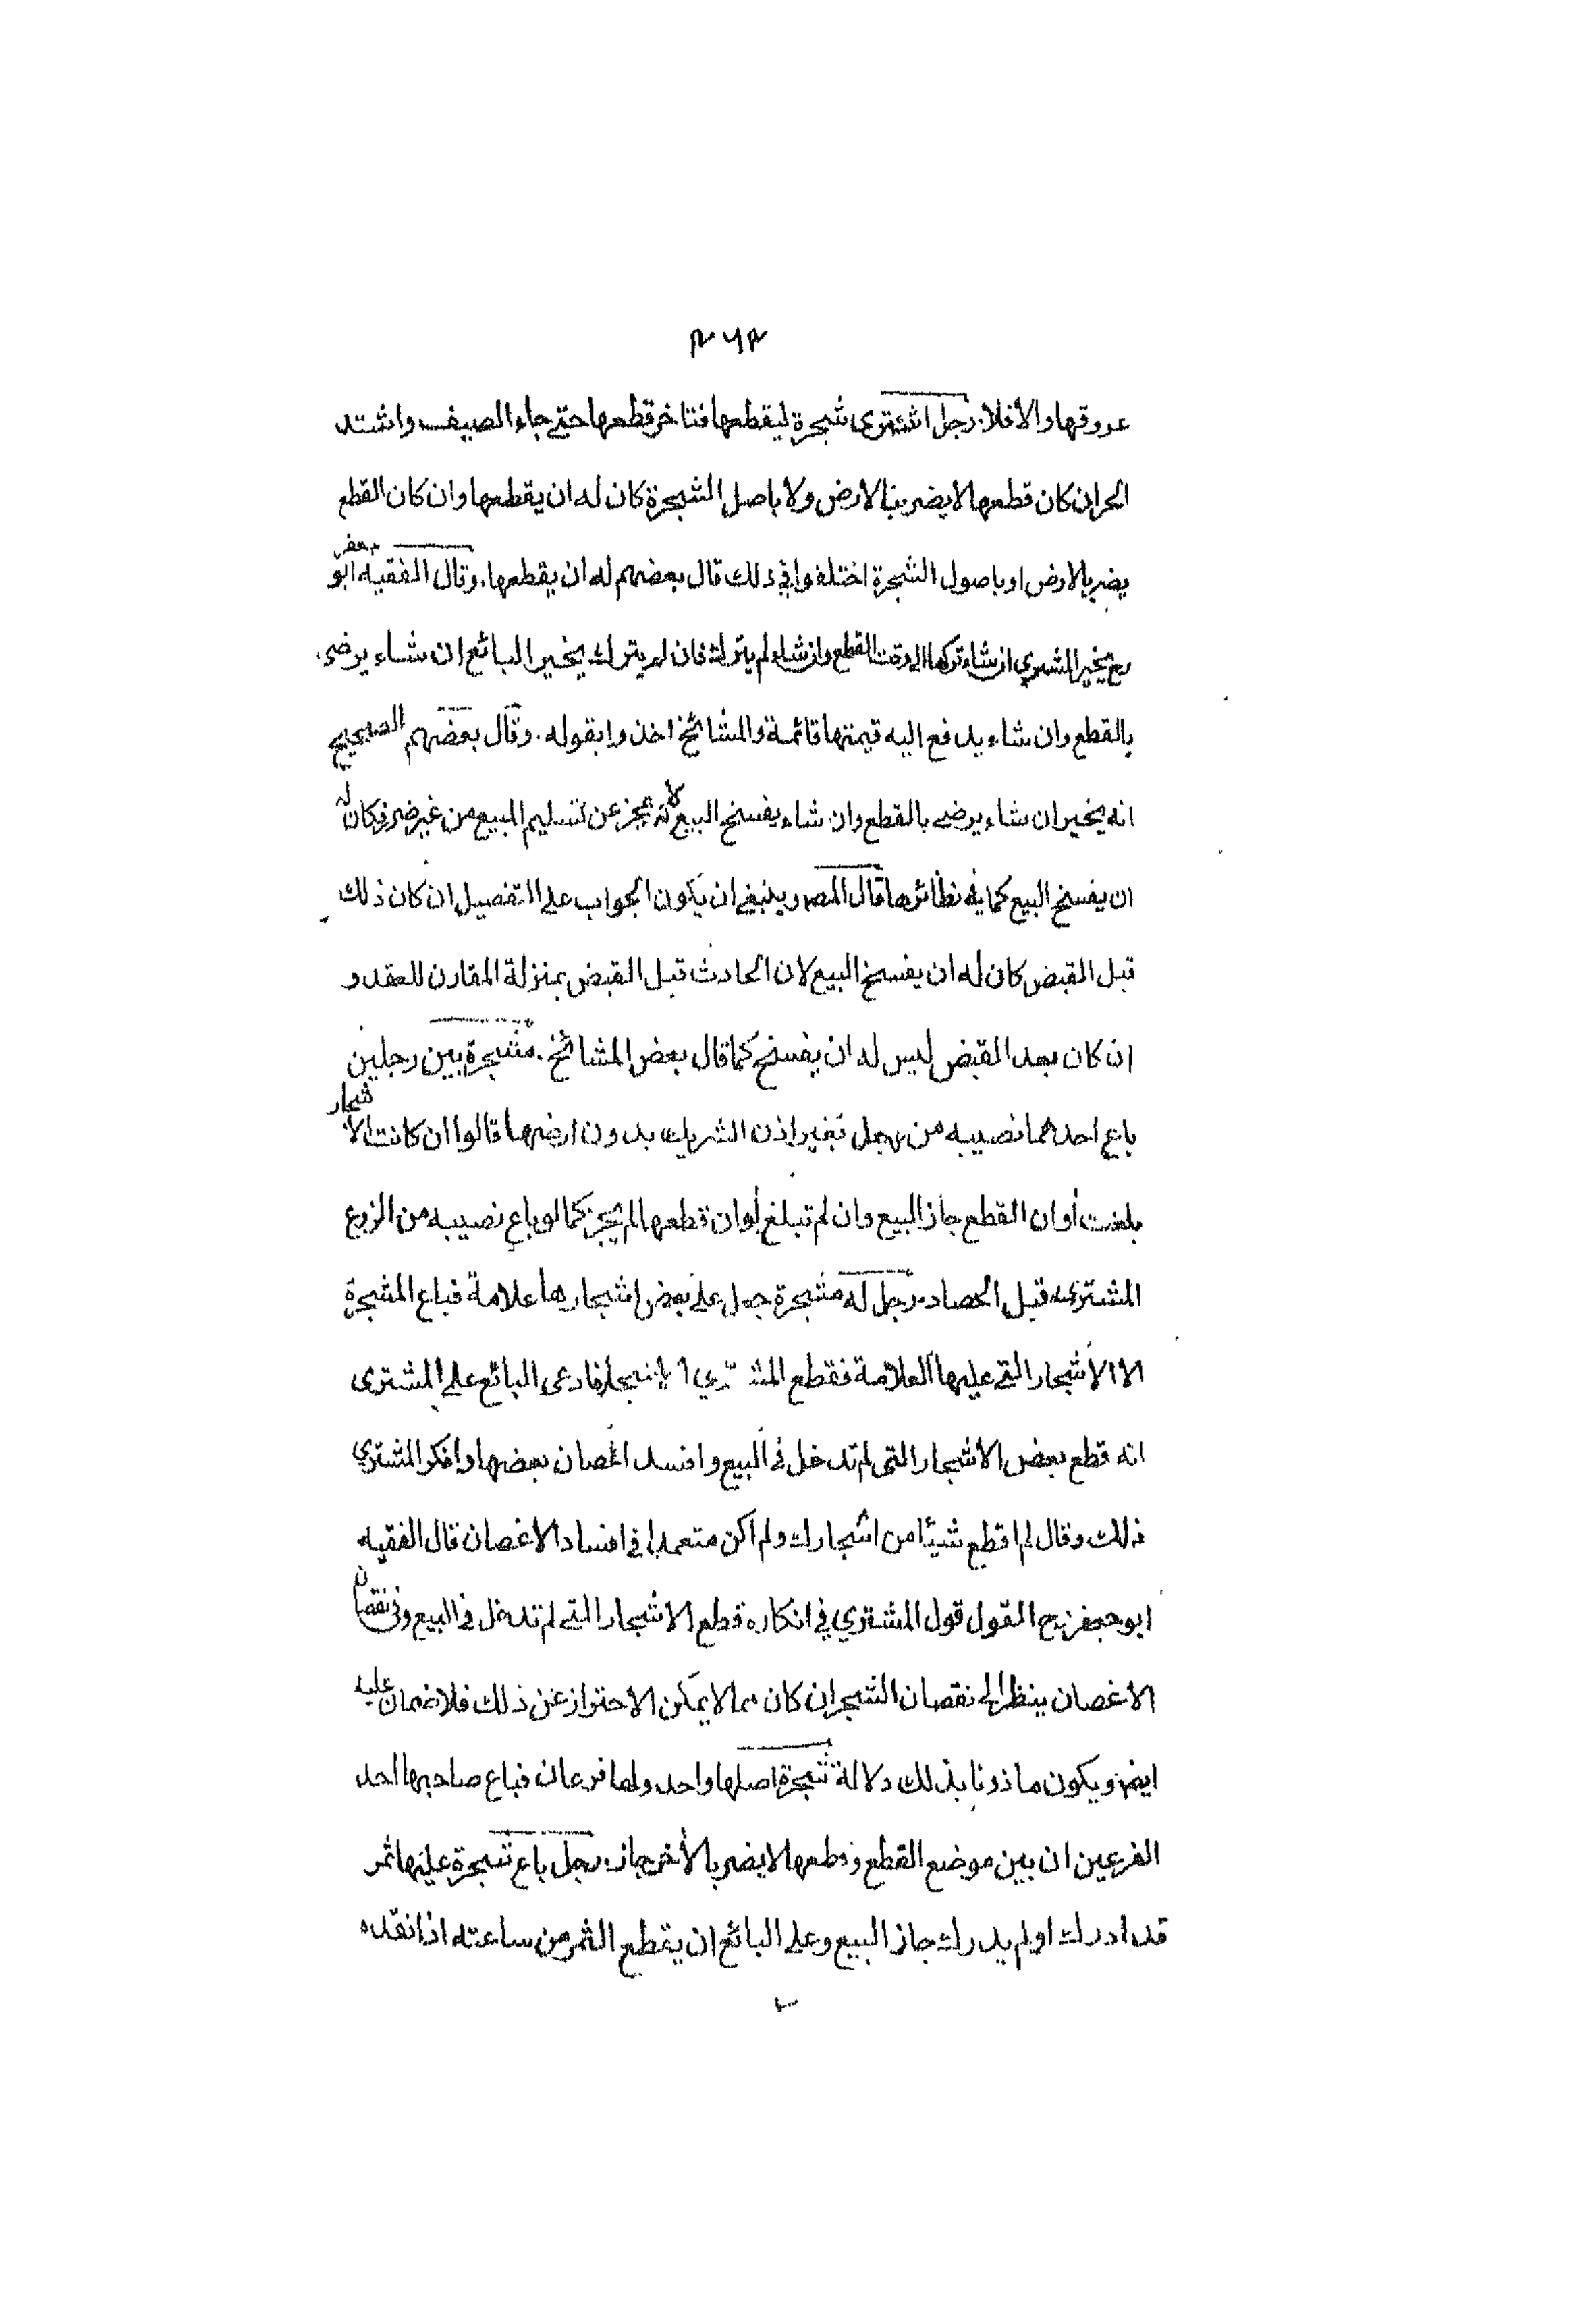 ۲۶۴
عروقها والا فلا. رجل اشترى شجرة ليقطعها فتاخر قطعها حتى جاء الصيف واشتد
الحر ان كان قطعها لا يضر بالارض ولا باصل الشجرة كان له ان يقطعها وان كان القطع
يضر بالارض او باصول الشجرة اختلفوا في ذلك قال بعضهم له ان يقطعها. وقال الفقيه ابو جعفر
رح يخير المشتري ان شاء تركها الى وقت القطع وان شاء لم يترك فان لم يترك يخير البائع ان شاء يرضى
بالقطع وان شاء يدفع اليه قيمتها قائمة والمشائخ اخذوا بقوله. وقال بعضهم الصحيح
انه يخير ان شاء يرضى بالقطع وان شاء يفسخ البيع لانه عجز عن تسليم المبيع من غير ضرر فكان له
ان يفسخ البيع كما في نظائرها قال المصر وينبغي ان يكون الجواب على التفصيل ان كان ذلك
قبل القبض كان له ان يفسخ البيع لان الحادث قبل القبض بمنزلة المقارن للعقد و
ان كان بعد القبض ليس له ان يفسخ كما قال بعض المشائخ. مشجرة بين رجلين
باع احدهما نصيبه من رجل بغير اذن الشريك بدون ارضها قالوا ان كانت الاشجار
بلغت أوان القطع جاز البيع وان لم تبلغ أوان قطعها لم يجز كما لو باع نصيبه من الزرع
المشترك قبل الحصاد. رجل له مشجرة جعل على بعض اشجارها علامة فباع المشجرة
الا الاشجار التي عليها العلامة فقطع المشتري الاشجار فادعى البائع على المشترى
انه قطع بعض الاشجار التي لم تدخل في البيع وافسد اغصان بعضها وانكر المشتري
ذلك وقال لم اقطع شيئا من اشجارك ولم اكن متعمدا في افساد الاغصان قال الفقيه
ابو جعفر رح القول قول المشتري في انكاره قطع الاشجار التي لم تدخل في البيع وفى نقصان
الاغصان ينظر الى نقصان الشجر ان كان مما لا يمكن الاحتراز عن ذلك فلا ضمان عليه
ايضا ويكون ماذونا بذلك دلالة شجرة اصلها واحد ولها فرعان فباع صاحبها احد
الفرعين ان بين موضع القطع وقطعها لا يضر بالأخر جاز. رجل باع شجرة عليها ثمر
قد ادرك او لم يدرك جاز البيع وعلى البائع ان يقطع الثمر من ساعته اذا نقده